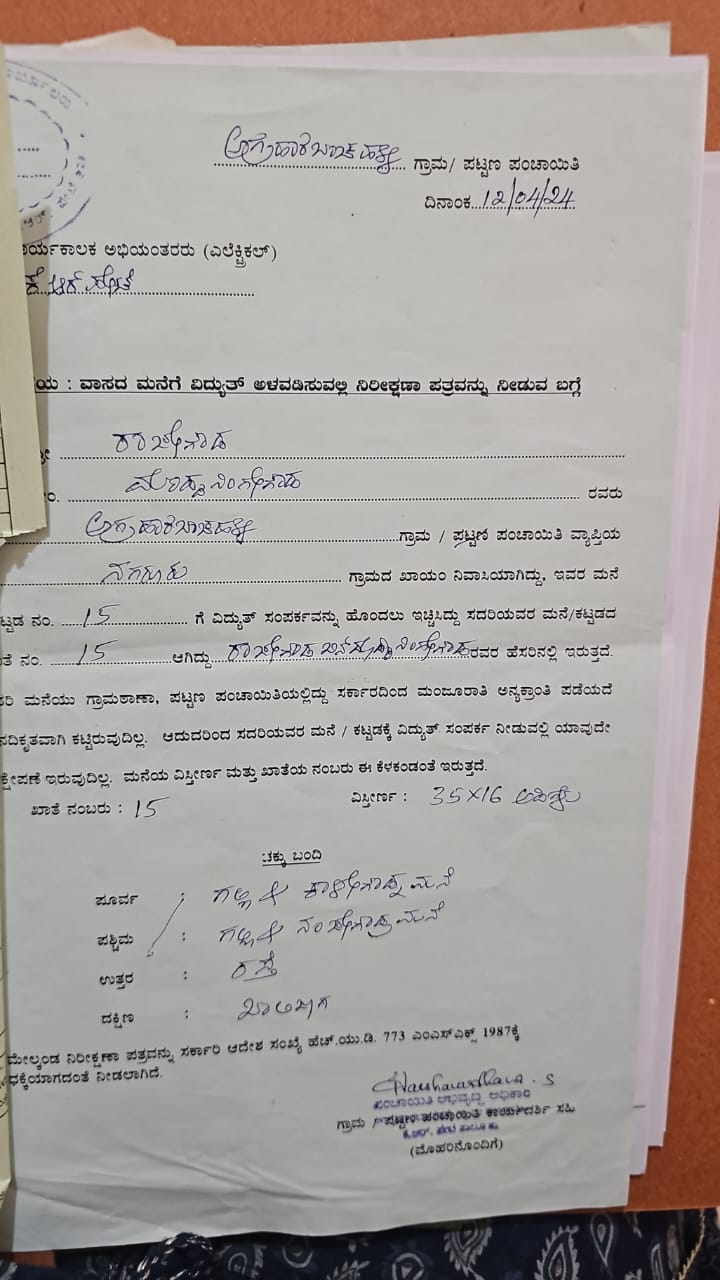 ಅಗ್ರಹಾರಬಾಚಹಳ್ಳಿ ಗ್ರಾಮ/ ಪಟ್ಟಣ ಪಂಚಾಯಿತಿ
ದಿನಾಂಕ 12/04/24
ರ್ಯಕಾಲಕ ಅಭಿಯಂತರರು (ಎಲೆಕ್ಟ್ರಿಕಲ್)
ಕೆ ಆರ್ ಪೇಟೆ
ಯ : ವಾಸದ ಮನೆಗೆ ವಿದ್ಯುತ್ ಅಳವಡಿಸುವಲ್ಲಿ ನಿರೀಕ್ಷಣಾ ಪತ್ರವನ್ನು ನೀಡುವ ಬಗ್ಗೆ
ರಾಜೇಗೌಡ
ನಿಂಗೇಗೌಡ ರವರು
ಅಗ್ರಹಾರಬಾಚಹಳ್ಳಿ ಗ್ರಾಮ / ಪಟ್ಟಣ ಪಂಚಾಯಿತಿ ವ್ಯಾಪ್ತಿಯ
ಗ್ರಾಮದ ಖಾಯಂ ನಿವಾಸಿಯಾಗಿದ್ದು, ಇವರ ಮನೆ
ಟ್ಟಡ ನಂ. 15 ಗೆ ವಿದ್ಯುತ್ ಸಂಪರ್ಕವನ್ನು ಹೊಂದಲು ಇಚ್ಚಿಸಿದ್ದು ಸದರಿಯವರ ಮನೆ/ಕಟ್ಟಡದ
ತೆ ನಂ. 15 ಆಗಿದ್ದು ರಾಜೇಗೌಡ ಬಿನ್ ನಿಂಗೇಗೌಡ ರವರ ಹೆಸರಿನಲ್ಲಿ ಇರುತ್ತದೆ.
ರಿ ಮನೆಯು ಗ್ರಾಮಠಾಣಾ, ಪಟ್ಟಣ ಪಂಚಾಯಿತಿಯಲ್ಲಿದ್ದು ಸರ್ಕಾರದಿಂದ ಮಂಜೂರಾತಿ ಅನ್ಯಕ್ರಾಂತಿ ಪಡೆಯದೆ
ನದಿಕೃತವಾಗಿ ಕಟ್ಟಿರುವುದಿಲ್ಲ. ಆದುದರಿಂದ ಸದರಿಯವರ ಮನೆ / ಕಟ್ಟಡಕ್ಕೆ ವಿದ್ಯುತ್ ಸಂಪರ್ಕ ನೀಡುವಲ್ಲಿ ಯಾವುದೇ
ಕ್ಷೇಪಣೆ ಇರುವುದಿಲ್ಲ. ಮನೆಯ ವಿಸ್ತೀರ್ಣ ಮತ್ತು ಖಾತೆಯ ನಂಬರು ಈ ಕೆಳಕಂಡಂತೆ ಇರುತ್ತದೆ.
ಖಾತೆ ನಂಬರು : 15 ವಿಸ್ತೀರ್ಣ : 35×16
ಚಕ್ಕು ಬಂದಿ
ಪೂರ್ವ : ಗಲ್ಲಿ & ಕಾಳೇಗೌಡ್ನ ಮನೆ
ಪಶ್ಚಿಮ : ಗಲ್ಲಿ & ಮನೆ
ಉತ್ತರ : ರಸ್ತೆ
ದಕ್ಷಿಣ :
ಮೇಲ್ಕಂಡ ನಿರೀಕ್ಷಣಾ ಪತ್ರವನ್ನು ಸರ್ಕಾರಿ ಆದೇಶ ಸಂಖ್ಯೆ ಹೆಚ್.ಯು.ಡಿ. 773 ಎಂಎಸ್ಎಕ್ಸ್ 1987ಕ್ಕೆ
ಧಕ್ಕೆಯಾಗದಂತೆ ನೀಡಲಾಗಿದೆ.
ಪಂಚಾಯಿತಿ ಅಭಿವೃದ್ಧಿ ಅಧಿಕಾರಿ
ಗ್ರಾಮ / ಪಟ್ಟಣ ಪಂಚಾಯಿತಿ ಕಾರ್ಯದರ್ಶಿ ಸಹಿ
ಕೆ.ಆರ್. ಪೇಟೆ ತಾಲೂಕು
(ಮೊಹರಿನೊಂದಿಗೆ)